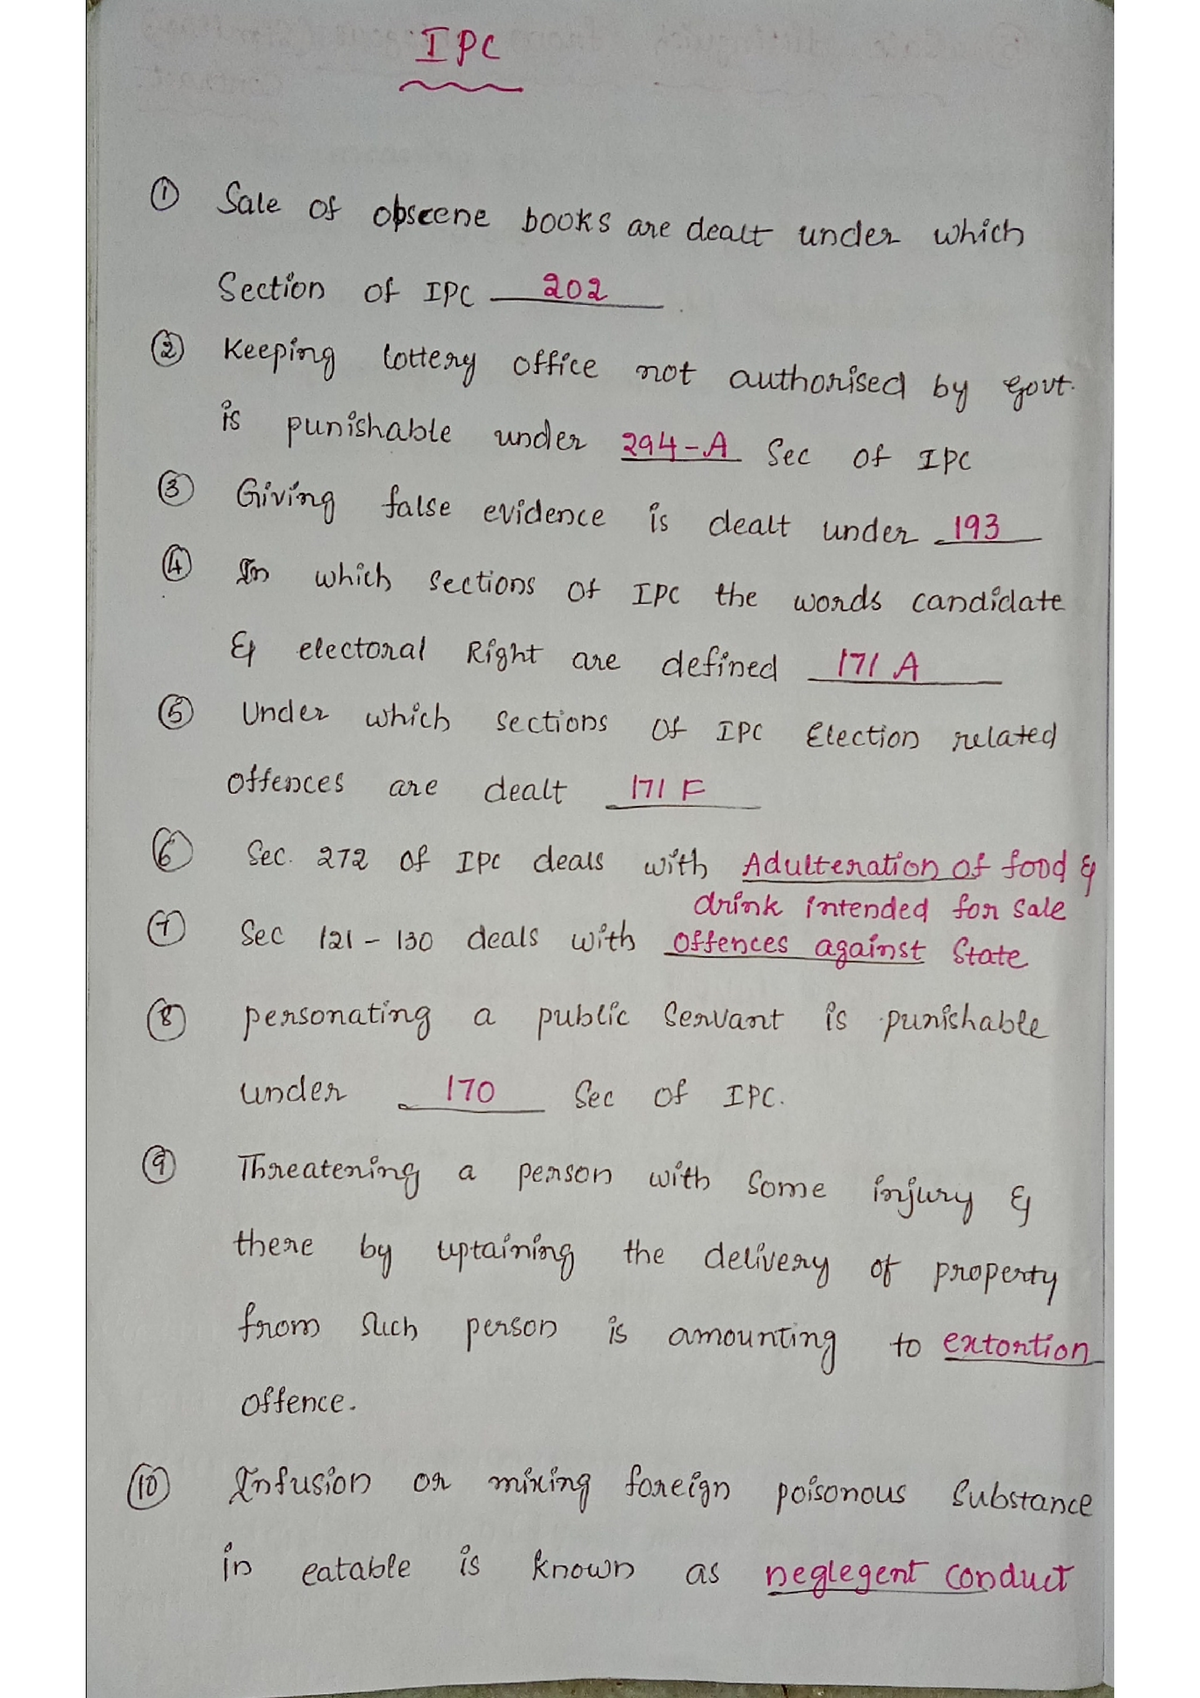 IPC
① Sale of obscene books are dealt under which
Section of IPC 202
② Keeping lottery office not authorised by govt.
is punishable under 294-A Sec of IPC
③ Giving false evidence is dealt under 193
④ In which sections of IPC the words candidate
& electoral Right are defined 171 A
⑤ Under which sections of IPC Election related
offences are dealt 171 F
⑥ Sec. 272 of IPC deals with Adulteration of food &
drink intended for sale
⑦ Sec 121 - 130 deals with offences against State
⑧ personating a public Servant is punishable
under 170 Sec of IPC.
⑨ Threatening a person with some injury &
there by uptaining the delivery of property
from such person is amounting to extortion
offence.
⑩ Infusion or mixing foreign poisonous substance
in eatable is known as neglegent conduct